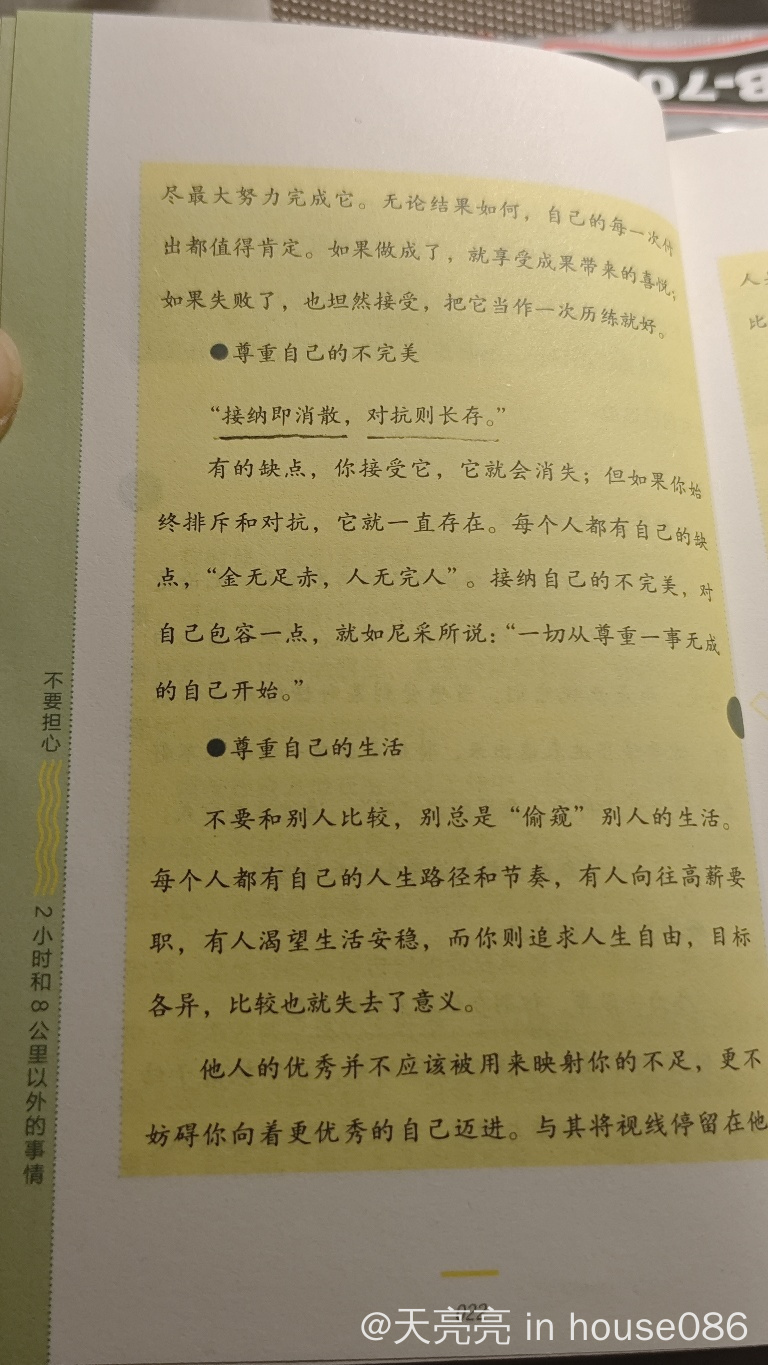 尽最大努力完成它。无论结果如何，自己的每一次付
出都值得肯定。如果做成了，就享受成果带来的喜悦；
如果失败了，也坦然接受，把它当作一次历练就好。
●尊重自己的不完美
“接纳即消散，对抗则长存。”
有的缺点，你接受它，它就会消失；但如果你始
终排斥和对抗，它就一直存在。每个人都有自己的缺
点，“金无足赤，人无完人”。接纳自己的不完美，对
自己包容一点，就如尼采所说：“一切从尊重一事无成
的自己开始。”
●尊重自己的生活
不要和别人比较，别总是“偷窥”别人的生活。
每个人都有自己的人生路径和节奏，有人向往高薪要
职，有人渴望生活安稳，而你则追求人生自由，目标
各异，比较也就失去了意义。
他人的优秀并不应该被用来映射你的不足，更不
妨碍你向着更优秀的自己迈进。与其将视线停留在他
022
不要担心
2小时和8公里以外的事情
人
比
B-70
@天亮亮 in house086